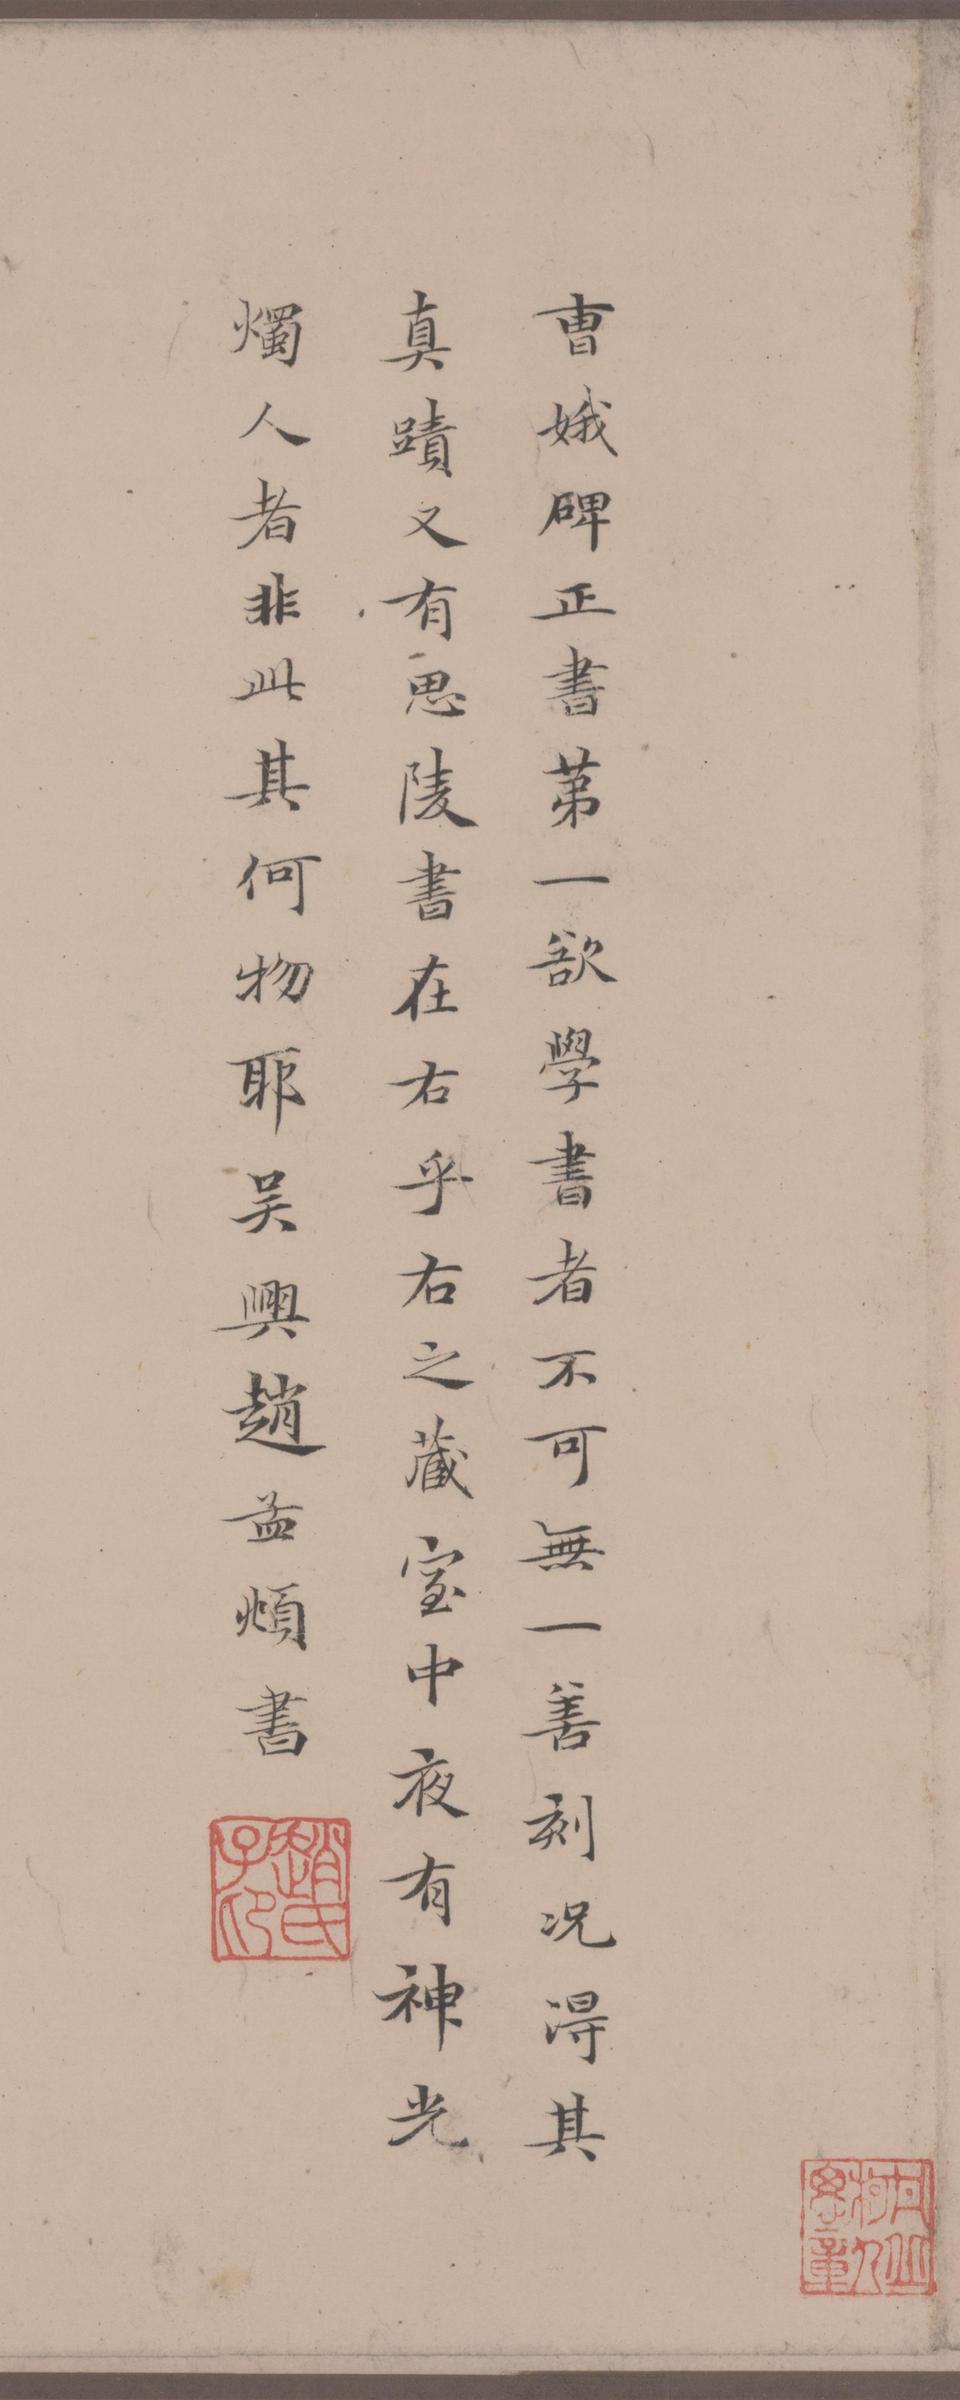 曺娥碑正書苐一欲學書者不可無一善刻况淂其
真蹟又有思陵書在右乎右之蔵室中夜有神光
燭人者非此其何物耶吴興趙孟頫書
趙氏子印